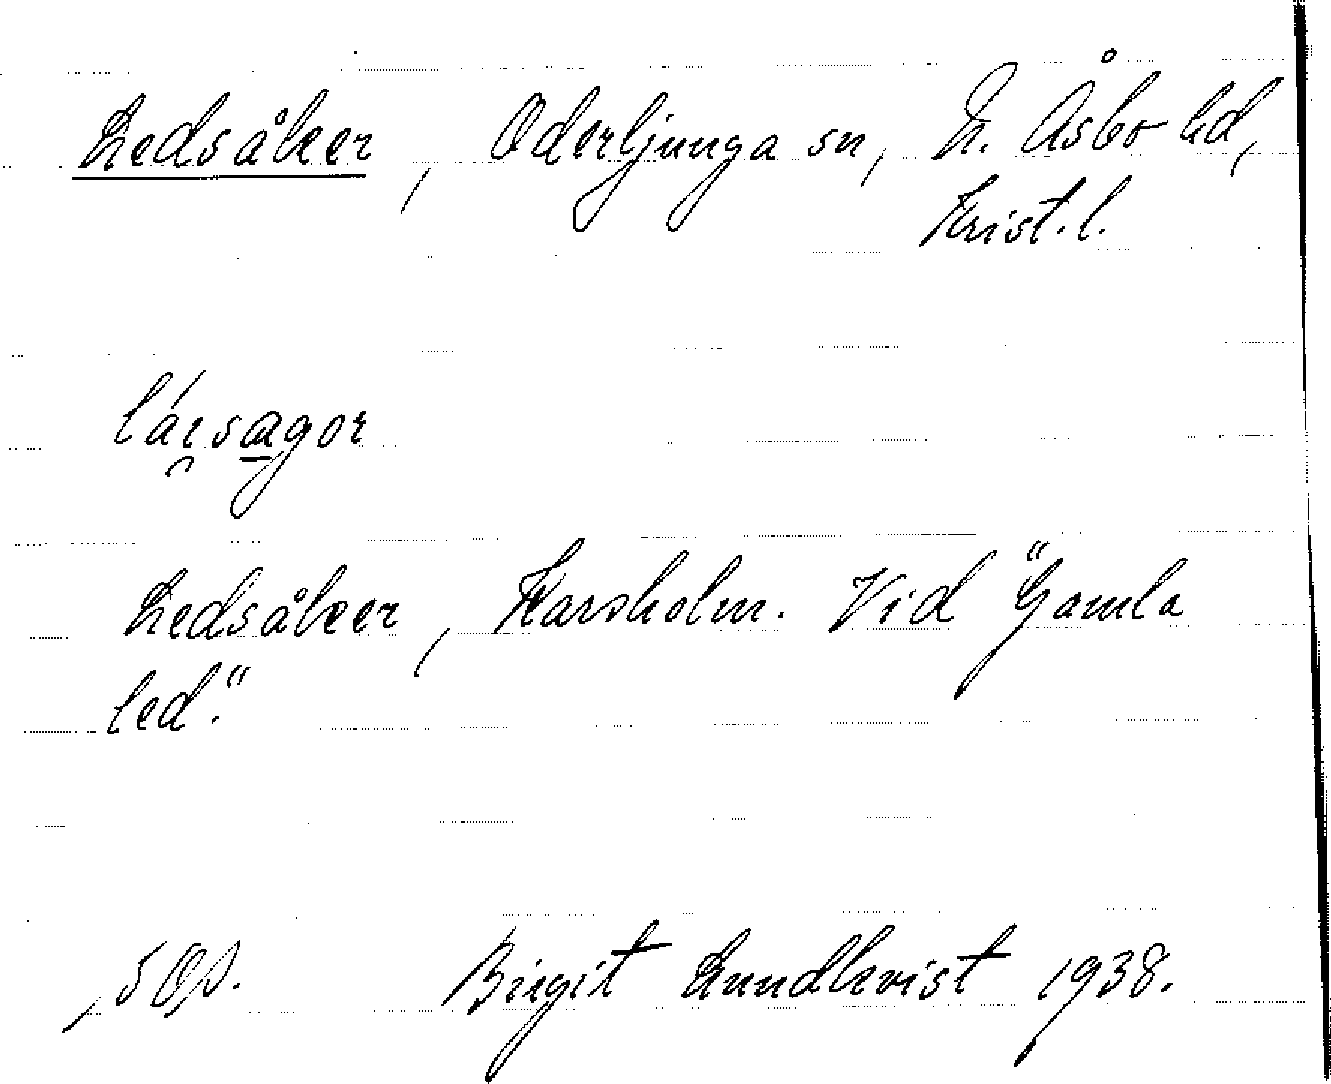 Ledsåker, Oderljunga sn, N. Åsbo hd,
Krist. l.
láesagor
Ledsåker, Karsholm. Vid "Gamla
led."
Birgit Lundkvist 1938.